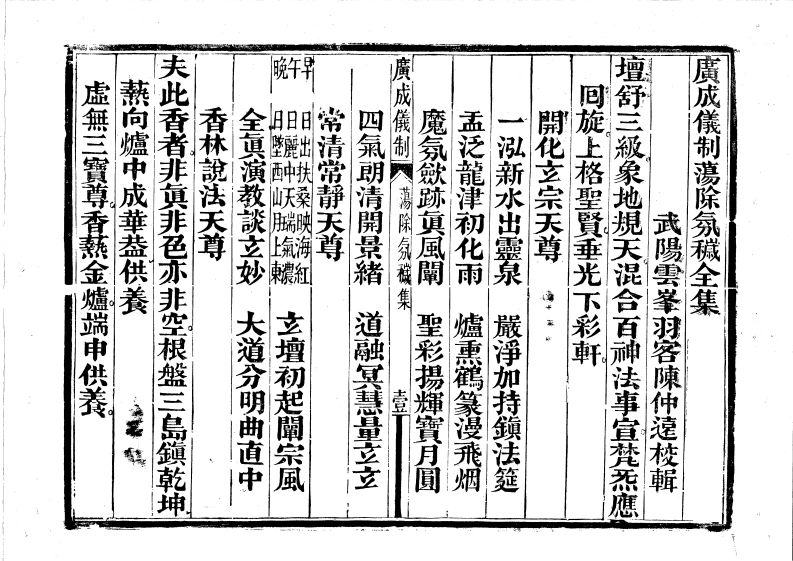 廣成儀制蕩除氛穢全集
武陽雲峯羽客陳仲遠校輯
壇舒三級象地規天混合百神法事宣梵炁應
囘旋上格聖賢垂光下彩軒
開化玄宗天尊
一泓新水出靈泉 嚴淨加持鎮法筵
盂泛龍津初化雨 爐熏鶴篆漫飛烟
魔氛歛跡眞風闡 聖彩揚輝寶月圓
廣成儀制 蕩除氛穢集 壹
四氣朝清開景緒 道融冥慧量玄玄
常清常靜天尊
早 日出扶桑映海紅
午 日麗中天端氣濃
晚 日墜西山月上東
玄壇初起闡宗風
全眞演教談玄妙 大道分明曲直中
香林說法天尊
夫此香者非眞非色亦非空根盤三島鎮乾坤
爇向爐中成華葢供養
虛無三寶尊香爇金爐端申供養